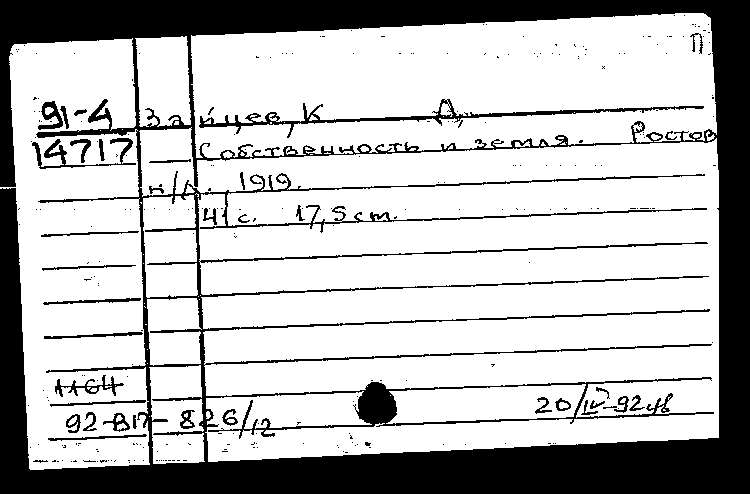 П
91-4 Зайцев, К Д,
14717 Собственность и земля. Ростов
н/Д., 1919.
41 с. 17,5 cm.
1164
92-ВП-826/12 20/IV-92